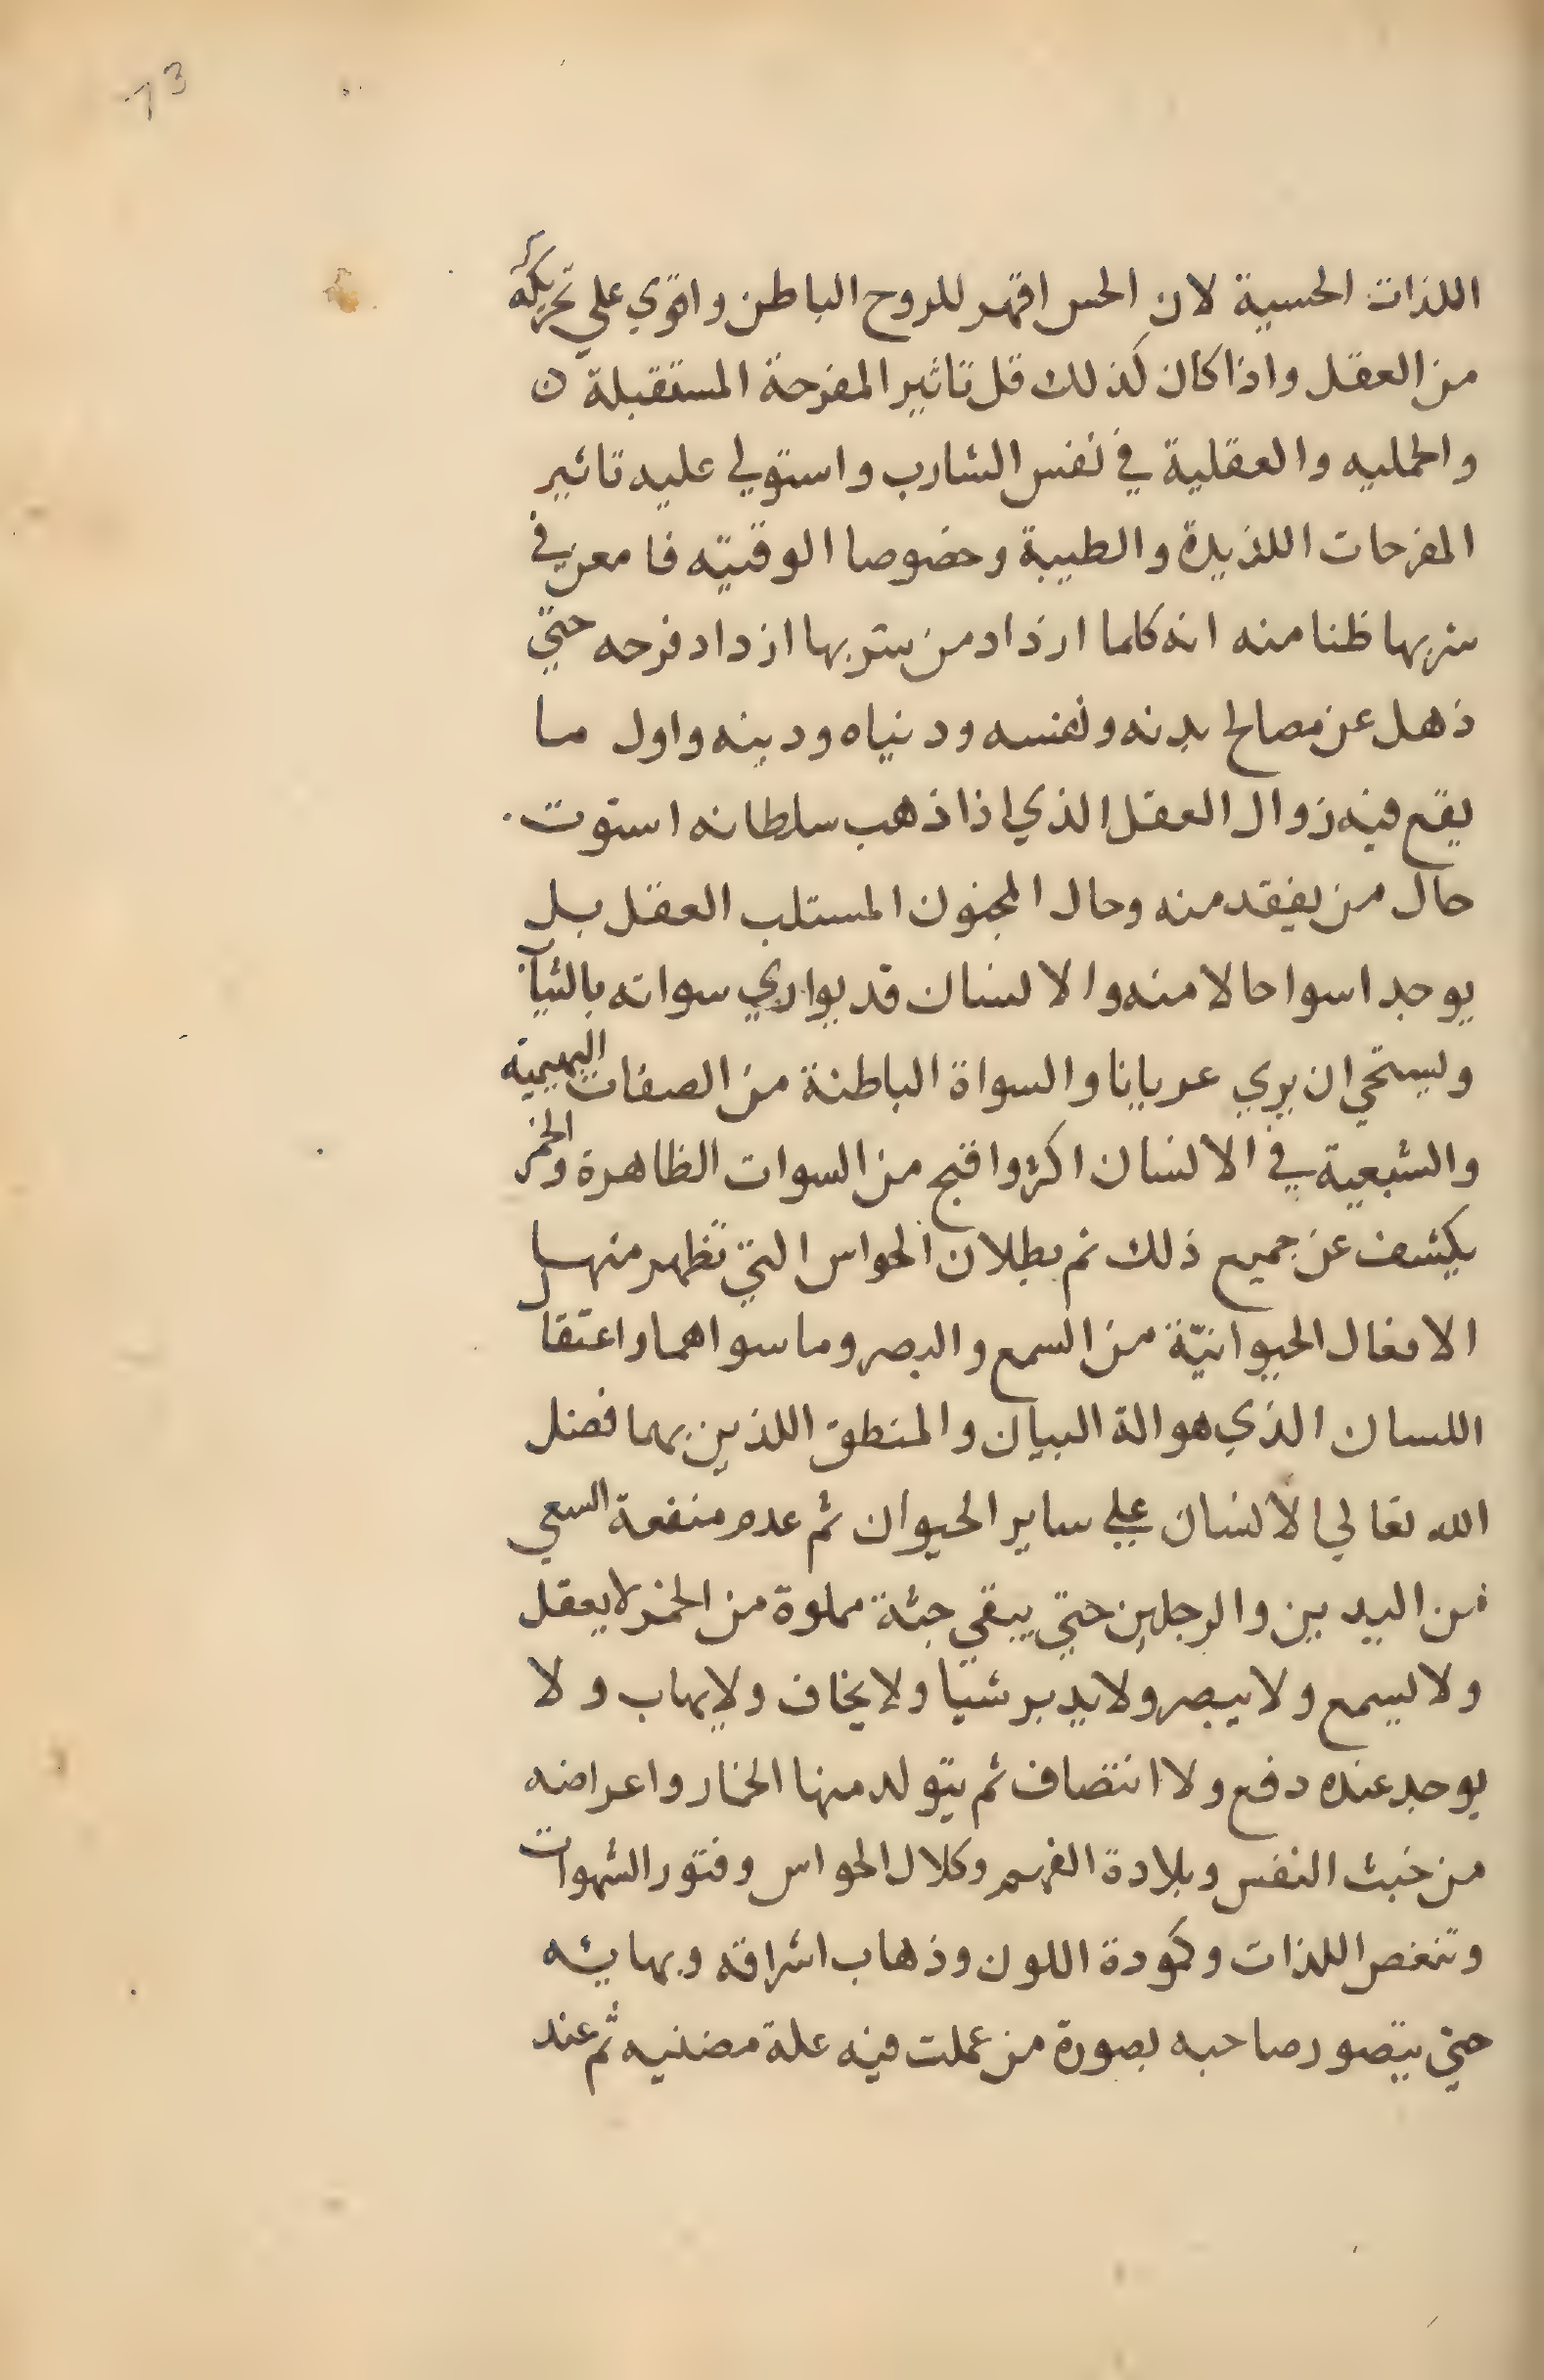 13
اللذات الحسية لان الحس اقهر للروح الباطن واقوي علي تحريكه
من العقل واذا كان كذلك قل تاثير المفرحة المستقبلة
والحمليه والعقلية في نفس الشارب واستولي عليه تاثير
المفرحات اللذيذة والطيبة وخصوصا الوقتيه فامعن في
شربها ظنا منه انه كلما ازداد من شربها ازداد فرحه حتي
ذهل عن مصالح بدنه ونفسه ودنياه ودينه واول ما
يقع فيه زوال العقل الذي اذا ذهب سلطانه استوت
حال من يفقد منه وحال المجنون المستلب العقل بل
يوجد اسوا حالا منه والانسان قد يواري سواته بالثياب
ويستحي ان يري عريانا والسواة الباطنة من الصفات البهيمية
والسبعية في الانسان اكثر واقبح من السوات الظاهرة والخمر
يكشف عن جميع ذلك ثم بطلان الحواس التي تظهر منها
الافعال الحيوانيّة من السمع والبصر وما سواهما واعتقا
اللسان الذي هو الة البيان والمنطق اللذين بهما فضل
الله تعالي الانسان علي ساير الحيوان ثم عدم منفعة السعي
من اليدين والرجلين حتي يبقي جثة مملوة من الخمر لا يعقل
ولا يسمع ولا يبصر ولا يدبر شيا ولا يخاف ولا يهاب ولا
يوجد عنده دفع ولا انتصاف ثم يتولد منها الخمار واعراضه
من خبث النفس وبلادة الفهم وكلال الحواس وفتور الشهوات
وتنغص اللذات وكمودة اللون وذهاب اشراقه وبهائه
حتي يتصور صاحبه بصورة من عملت فيه علة مضنيه ثم عند